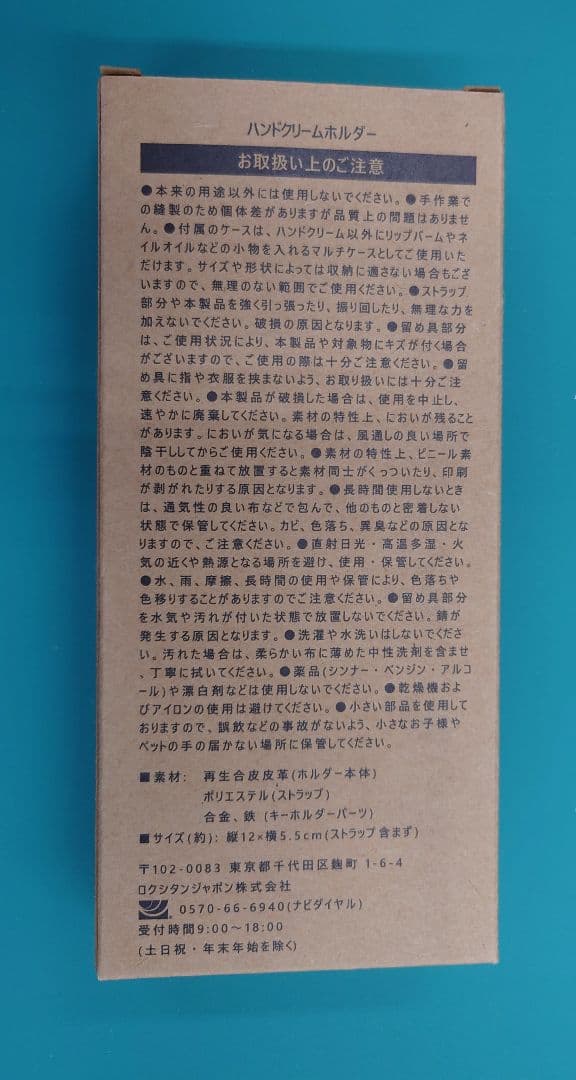 ハンドクリームホルダー
お取扱い上のご注意
●本来の用途以外には使用しないでください。●手作業で
の縫製のため個体差がありますが品質上の問題はありませ
ん。●付属のケースは、ハンドクリーム以外にリップバームやネ
イルオイルなどの小物を入れるマルチケースとしてご使用いた
だけます。サイズや形状によっては収納に適さない場合もござ
いますので、無理のない範囲でご使用ください。●ストラップ
部分や本製品を強く引っ張ったり、振り回したり、無理な力を
加えないでください。破損の原因となります。●留め具部分
は、ご使用状況により、本製品や対象物にキズが付く場合
がございますので、ご使用の際は十分ご注意ください。●留
め具に指や衣服を挟まないよう、お取り扱いには十分ご注
意ください。●本製品が破損した場合は、使用を中止し、
速やかに廃棄してください。素材の特性上、においが残ること
があります。においが気になる場合は、風通しの良い場所で
陰干ししてからご使用ください。●素材の特性上、ビニール素
材のものと重ねて放置すると素材同士がくっついたり、印刷
が剥がれたりする原因となります。●長時間使用しないとき
は、通気性の良い布などで包んで、他のものと密着しない
状態で保管してください。カビ、色落ち、異臭などの原因とな
りますので、ご注意ください。●直射日光・高温多湿・火
気の近くや熱源となる場所を避け、使用・保管してください。
●水、雨、摩擦、長時間の使用や保管により、色落ちや
色移りすることがありますのでご注意ください。●留め具部分
を水気や汚れが付いた状態で放置しないでください。錆が
発生する原因となります。●洗濯や水洗いはしないでくださ
い。汚れた場合は、柔らかい布に薄めた中性洗剤を含ませ
、丁寧に拭いてください。●薬品(シンナー・ベンジン・アルコ
ール)や漂白剤などは使用しないでください。●乾燥機およ
びアイロンの使用は避けてください。●小さい部品を使用して
おりますので、誤飲などの事故がないよう、小さなお子様や
ペットの手の届かない場所に保管してください。
■素材: 再生合皮皮革(ホルダー本体)
ポリエステル(ストラップ)
合金、鉄 (キーホルダーパーツ)
■サイズ(約): 縦12×横5.5cm(ストラップ含まず)
〒102-0083 東京都千代田区麹町 1-6-4
ロクシタンジャポン株式会社
0570-66-6940(ナビダイヤル)
受付時間9:00～18:00
(土日祝・年末年始を除く)